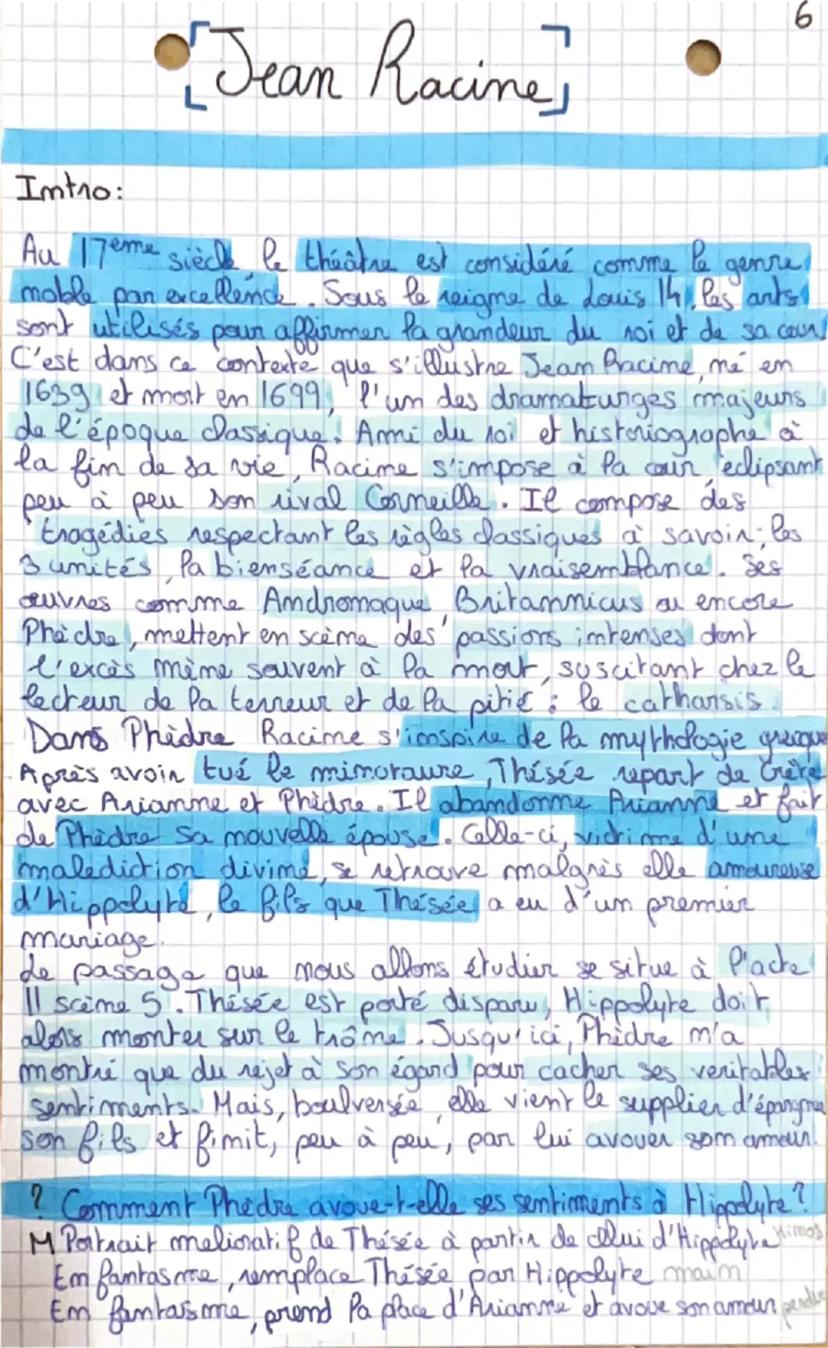 6
[Jean Racine]
Intro:
Au 17ème siècle, le théâtre est considéré comme le genre
noble par excellence. Sous le reigne de Louis 14, les arts
sont utilisés pour affirmer la grandeur du roi et de sa cour
C'est dans ce contexte que s'illustre Jean Racine, né en
1639 et mort en 1699, l'un des dramaturges majeurs
de l'époque classique. Ami du roi et historiographe à
la fin de sa vie, Racine s'impose à la cour, éclipsant
peu à peu son rival Corneille. Il compose des
tragédies respectant les règles classiques à savoir: les
3 unités, la bienséance et la vraisemblance. Ses
œuvres comme Andromaque, Britannicus ou encore
Phèdre, mettent en scène des passions intenses dont
l'excès mène souvent à la mort, suscitant chez le
lecteur de la terreur et de la pitié : le catharsis.
Dans Phèdre Racine s'inspire de la mythologie grecque
Après avoir tué le minotaure, Thésée repart de Crète
avec Arianne et Phèdre. Il abandonne Arianne et fait
de Phèdre sa nouvelle épouse. Celle-ci, victime d'une
malediction divine, se retrouve malgrès elle amoureuse
d'Hippolyte, le fils que Thésée a eu d'un premier
mariage.
Le passage que nous allons étudier se situe à l'acte
II scène 5. Thésée est porté disparu, Hippolyte doit
alors monter sur le trône. Jusqu'ici, Phèdre n'a
montré que du rejet à son égard pour cacher ses veritables
sentiments. Mais, boulversée, elle vient le supplier d'épargner
son fils et finit, peu à peu, par lui avouer son amour.
? Comment Phèdre avoue-t-elle ses sentiments à Hippolyte ?
M Portrait melioratif de Thésée à partir de celui d'Hippolyte
En fantasme, remplace Thésée par Hippolyte main
En fantasme, prend la place d'Arianne et avoue son amour perdue